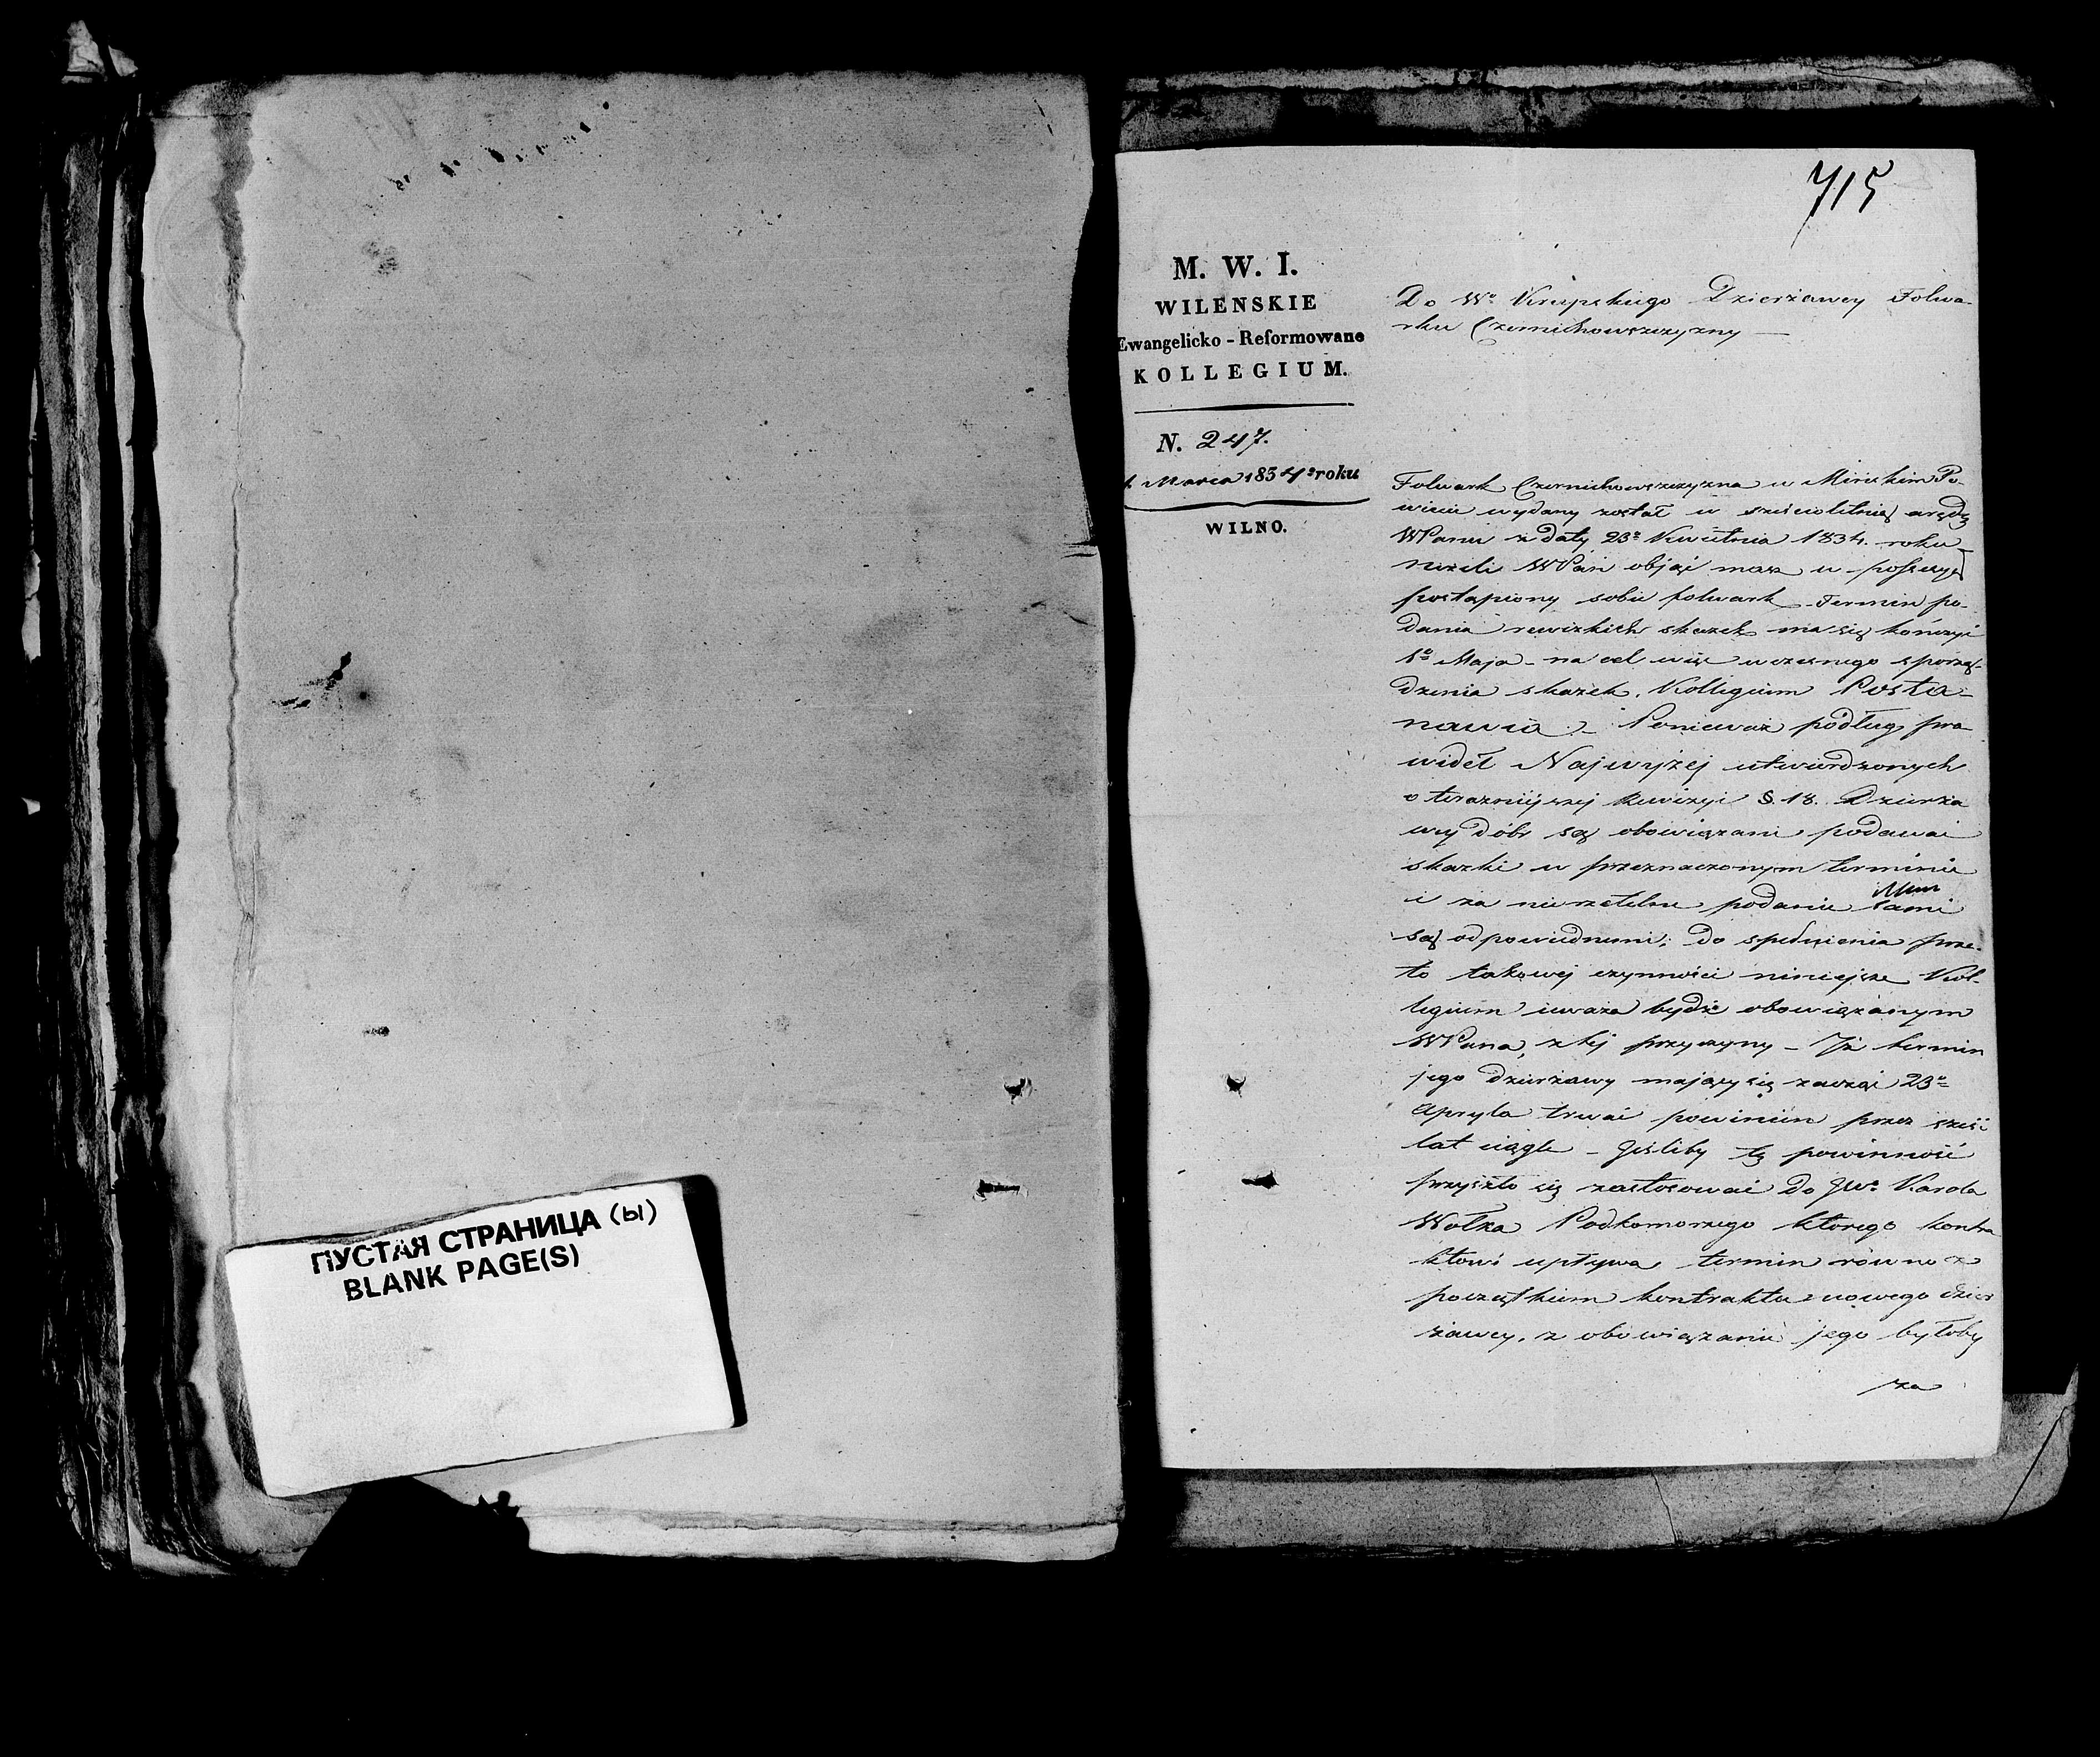 ПУСТАЯ СТРАНИЦА (Ы)
BLANK PAGE(S)
715
M. W. I.
WILENSKIE
Ewangelicko - Reformowane
KOLLEGIUM.
N. 247.
Marca 1834º roku
WILNO.
Do Wº Krupskiego Dzierżawcy Folwa-
rku Czernichowszczyzny —
Folwark Czernichowszczyzna w Mińskim Po-
wiecie wydany został w sześcioletnią arędę
WPanu z daty 23º Kwietnia 1834. roku
nizeli WPan objąć masz w possesyę
postąpiony sobie folwark - Termin po-
dania rewizkich skazek ma się kończyć
1º Maja - na cel więc wczesnego sporzą-
dzenia skazek, Kollegium Posta-
nawia - Ponieważ podług pra-
wideł Najwyżej utwierdzonych
o teraznijszej Rewizyi §. 18. Dzierża
wcy dóbr są obowiązani podawać
skazki w przeznaczonym terminie
i za nierzetelne podanie sami
są odpowiednemi; do spełnienia prze-
to takowej czynności niniejsze Kol-
legium uważa bydź obowiązanym
WPana, z tej przyczyny - Iż termin
jego dzierżawy mający się zacząć 23º
Apryla trwać powinien przez sześć
lat ciągle - Jeśliby tę powinność
przyszło się zastosować do JWº Karola
Wołka Podkomorzego którego kontra
ktowi upływa termin równo z
początkiem kontraktu nowego dzier
żawcy, z obowiązania jego byłoby
za